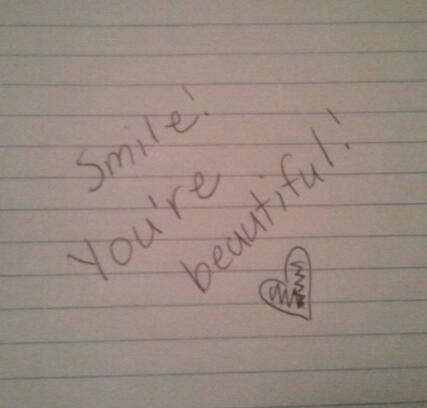 Smile!
You're
beautiful!